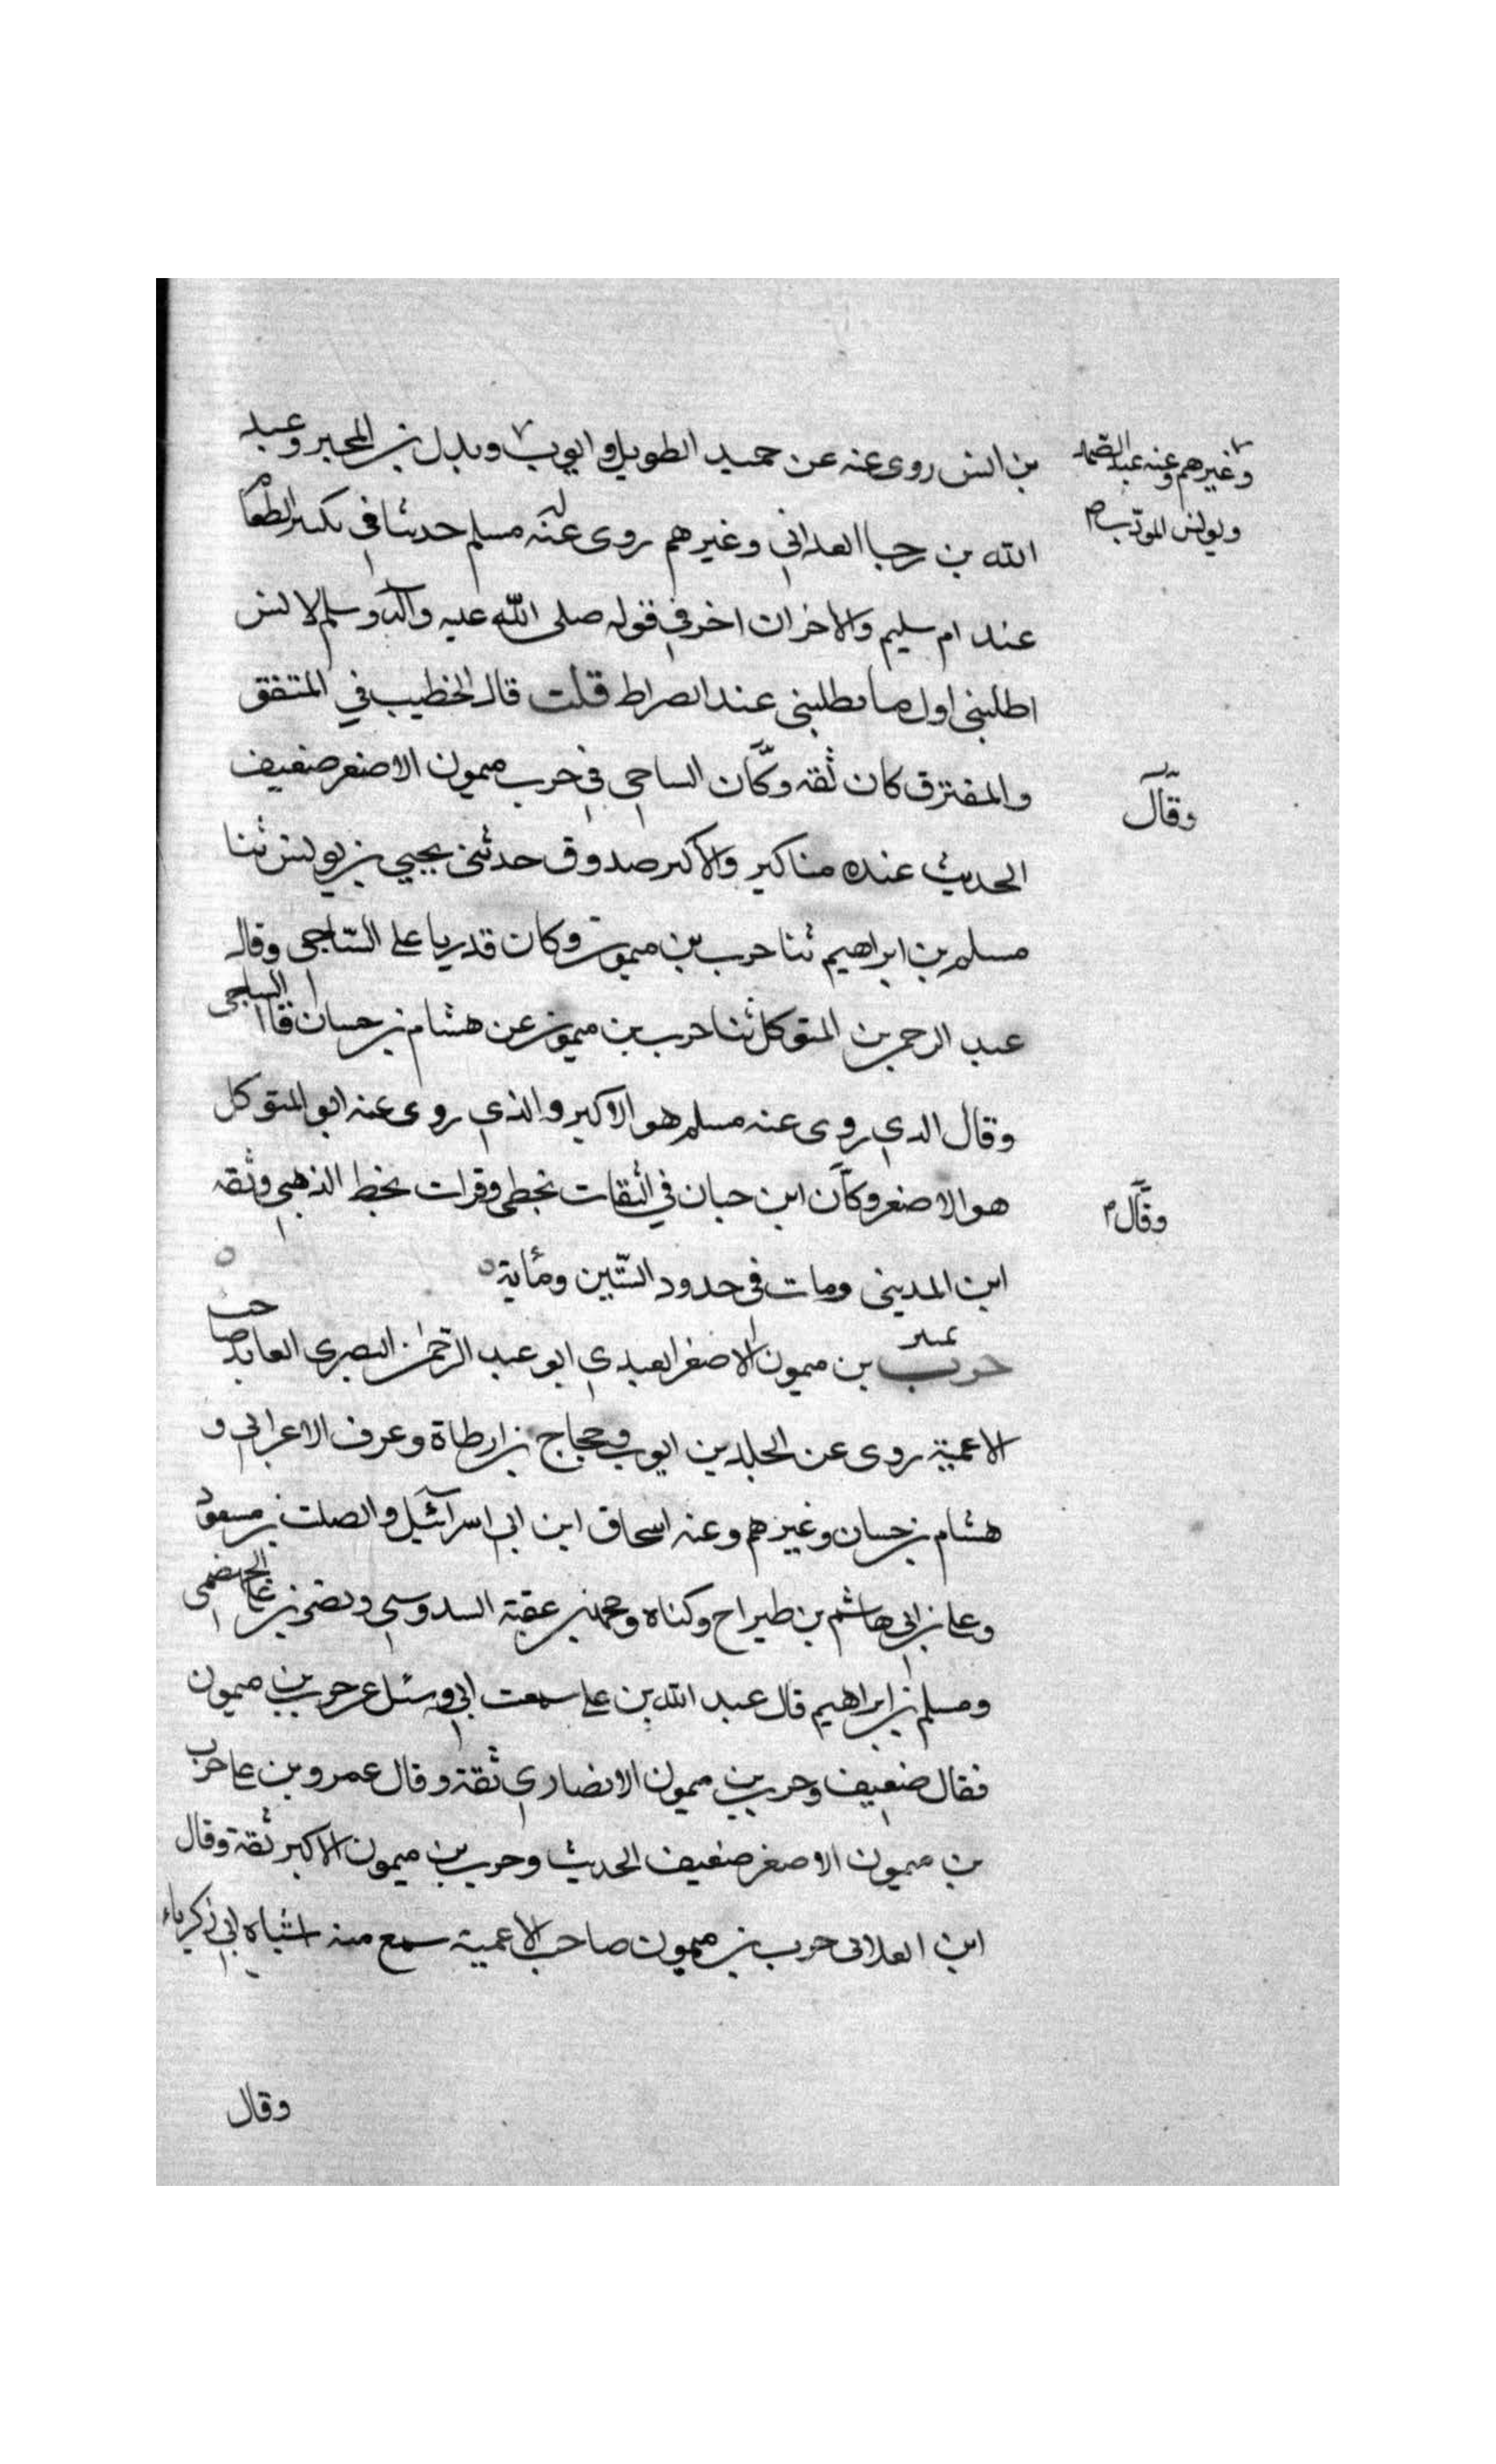 بن انس روى عنه عن حميد الطويل وايوب وبدل بن المحبر وعبد
وغيرهم وعنه عبد الصمد
ويونس المودب
الله بن رجا الغداني وغيرهم روى له مسلم حديثا في تكثير الطعام
عند ام سليم والاخر ان اخر في قوله صلى الله عليه وآله وسلم لانس
اطلبني اول ما تطلبني عند الصراط قلت قال الخطيب في المتفق
والمفترق كان ثقه وكان الساجي في حرب ميمون الاصغر ضعيف
وقال
الحديث عنده مناكير والاكبر صدوق حدثني يحيي بن يونس ثنا
مسلم بن ابراهيم ثنا حرب بن ميمون وكان قدريا على الساجي وقال
عبد الرحمن بن المتوكل ثنا حرب بن ميمون عن هشام بن حسان قال الساجي
وقال الدي روى عنه مسلم هو الاكبر والذي روى عنه ابو المتوكل
هو الاصغر وكان ابن حبان في الثقات يخطي وقرات بخط الذهبي وثقه
وقال
ابن المديني ومات في حدود الستين ومأية
حرب بن ميمون الاصغر العبدي ابو عبد الرحمن البصري العابد صاحب
الاعمية روى عن الجلد بن ايوب وحجاج بن ارطاة وعرف الاعرابي و
هشام بن حسان وغيرهم وعنه اسحاق ابن ابي اسرآئيل والصلت بن مسعود
وعلي بن ابي هاشم بن طيراح وكناه ومحمد بن عقبة السدوسي ونصر بن علي الجهضمي
ومسلم بن ابراهيم قال عبد الله بن علي سمعت ابي وسئل عن حرب بن ميمون
فقال ضعيف وحرب بن ميمون الانصاري ثقة وقال عمرو بن علي حرب
بن ميمون الاصغر ضعيف الحديث وحرب بن ميمون الاكبر ثقة وقال
ابن الغلابي حرب بن ميمون صاحب الاعمية سمع منه اشياه ابي زكرياء
وقال